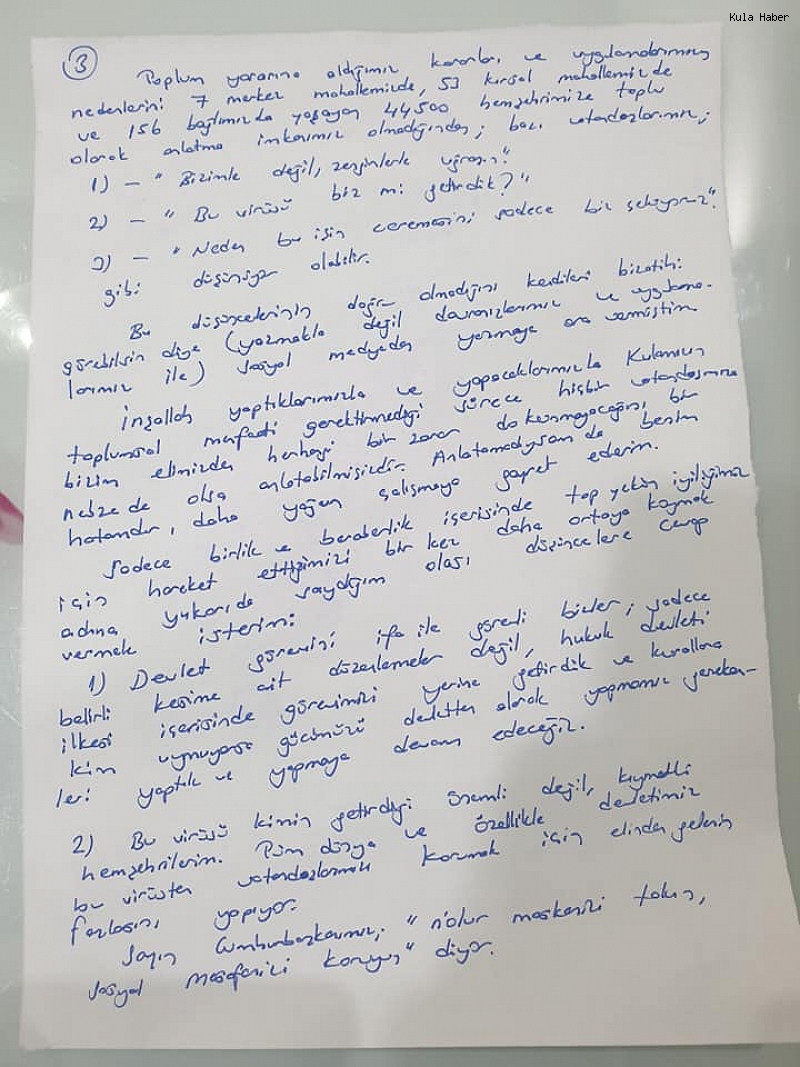 Kula Haber
3
Toplum yararına aldığımız kararları ve uygulamalarımızın
nedenlerini 7 merkez mahallemizde, 53 kırsal mahallemizde
ve 156 bağlımızda yaşayan 44.500 hemşehrimize toplu
olarak anlatma imkanımız olmadığından; bazı vatandaşlarımız;
1) — "Bizimle değil, zenginlerle uğraşın."
2) — "Bu virüsü biz mi getirdik?"
3) — "Neden bu işin ceremesini sadece biz çekiyoruz".
gibi düşünüyor olabilir.
Bu düşüncelerinin doğru olmadığını kendileri bizatihi
görebilsin diye (yazmakla değil davranışlarımız ve uygulama-
larımız ile) sosyal medyadan yazmaya ara vermiştim
İnşallah yaptıklarımızla ve yapacaklarımızla Kulamızın
toplumsal menfaati gerektirmediği sürece hiçbir vatandaşımıza
bizim elimizden herhangi bir zarar dokunmayacağını bir
nebze de olsa anlatabilmişizdir. Anlatamadıysam da benim
hatamdır, daha yoğun çalışmaya gayret ederim.
Sadece birlik ve beraberlik içerisinde top yekün iyiliğimiz
için hareket ettiğimizi bir kez daha ortaya koymak
adına yukarıda saydığım olası düşüncelere cevap
vermek isterim:
1) Devlet görevini ifa ile görevli bizler; sadece
belirli kesime ait düzenlemeler değil, hukuk devleti
ilkesi içerisinde görevimizi yerine getirdik ve kurallara
kim uymuyorsa gücümüzü devletten alarak yapmamız gereken-
leri yaptık ve yapmaya devam edeceğiz.
2) Bu virüsü kimin getirdiği önemli değil, kıymetli
hemşehrilerim. Tüm dünya ve özellikle devletimiz
bu virüsten vatandaşlarımızı korumak için elinden gelenin
fazlasını yapıyor.
Sayın Cumhurbaşkanımız; "n'olur maskenizi takın,
sosyal mesafenizi koruyun" diyor.